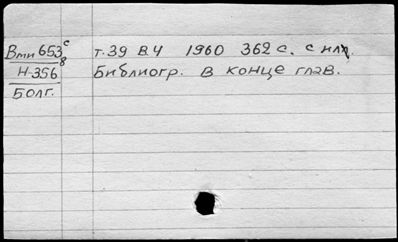 Вми 653 с/8 т. 39 в. 4 1960 362 с. с ил.
Н-356 Библиогр. в конце глав.
Болг.